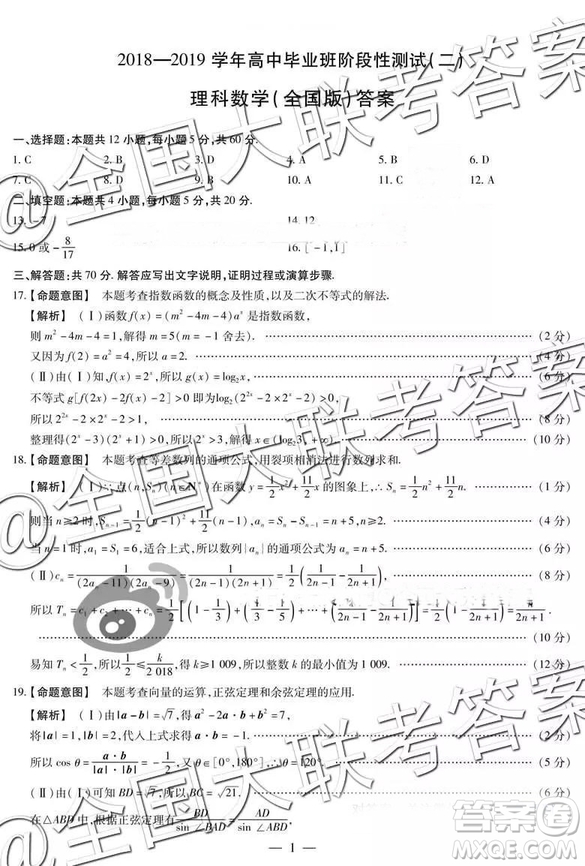 2018—2019 学年高中毕业班阶段性测试(二)
理科数学(全国版)答案
一、选择题:本题共 12 小题,每小题 5 分,共 60 分.
1. C 2. B 3. D 4. A 5. B 6. D
7. C 8. D 9. B 10. A 11. C 12. A
二、填空题:本题共 4 小题,每小题 5 分,共 20 分.
13. -7 14. 12
15. 0 或 -8/17 16. [-1,1]
三、解答题:共 70 分. 解答应写出文字说明,证明过程或演算步骤.
17.【命题意图】 本题考查指数函数的概念及性质,以及二次不等式的解法.
【解析】 (Ⅰ)函数 f(x)=(m²-4m-4)aˣ 是指数函数,
则 m²-4m-4=1,解得 m=5(m=-1 舍去). (2 分)
又因为 f(2)=a²=4,所以 a=2. (4 分)
(Ⅱ)由(Ⅰ)知,f(x)=2ˣ,所以 g(x)=log₂x, (6 分)
不等式 g[f(2x)-2f(x)-2]>0 即为log₂(2²ˣ-2×2ˣ-2)>0,
所以 2²ˣ-2×2ˣ-2>1, (8 分)
整理得(2ˣ-3)(2ˣ+1)>0,所以 2ˣ>3,解得 x∈(log₂3,+∞). (10 分)
18.【命题意图】 本题考查等差数列的通项公式,用裂项相消法进行数列求和.
【解析】 (Ⅰ)∵点(n,Sₙ)(n∈N*)在函数 y=1/2x²+11/2x 的图象上,∴Sₙ=1/2n²+11/2n. (1 分)
则当 n≥2 时,Sₙ₋₁=1/2(n-1)²+11/2(n-1),aₙ=Sₙ-Sₙ₋₁=n+5,n≥2. (4 分)
当 n=1 时,a₁=S₁=6,适合上式,所以数列{aₙ}的通项公式为 aₙ=n+5. (6 分)
(Ⅱ)cₙ=1/((2aₙ-11)(2aₙ-9))=1/((2n-1)(2n+1))=1/2(1/(2n-1)-1/(2n+1)), (8 分)
所以 Tₙ=c₁+c₂+…+cₙ=1/2[(1-1/3)+(1/3-1/5)+…+(1/(2n-1)-1/(2n+1))]=1/2(1-1/(2n+1))=n/(2n+1).
(10 分)
易知 Tₙ<1/2,所以1/2≤k/2 018,得 k≥1 009,所以 k 的最小值为 1 009. (12 分)
19.【命题意图】 本题考查向量的运算,正弦定理和余弦定理的应用.
【解析】 (Ⅰ)由|a-b|=√7,得 a²-2a·b+b²=7,
将|a|=1,|b|=2,代入上式求得 a·b=-1. (2 分)
所以 cos θ=a·b/(|a|·|b|)=-1/2,又 θ∈[0°,180°],∴θ=120°.
(Ⅱ)由(Ⅰ)可知 BD=√7,所以 BC=√21. (6 分)
在△ABD 中,根据正弦定理有 BD/sin∠BAD=AD/sin∠ABD,
— 1 —
@全国大联考答案
答案圈